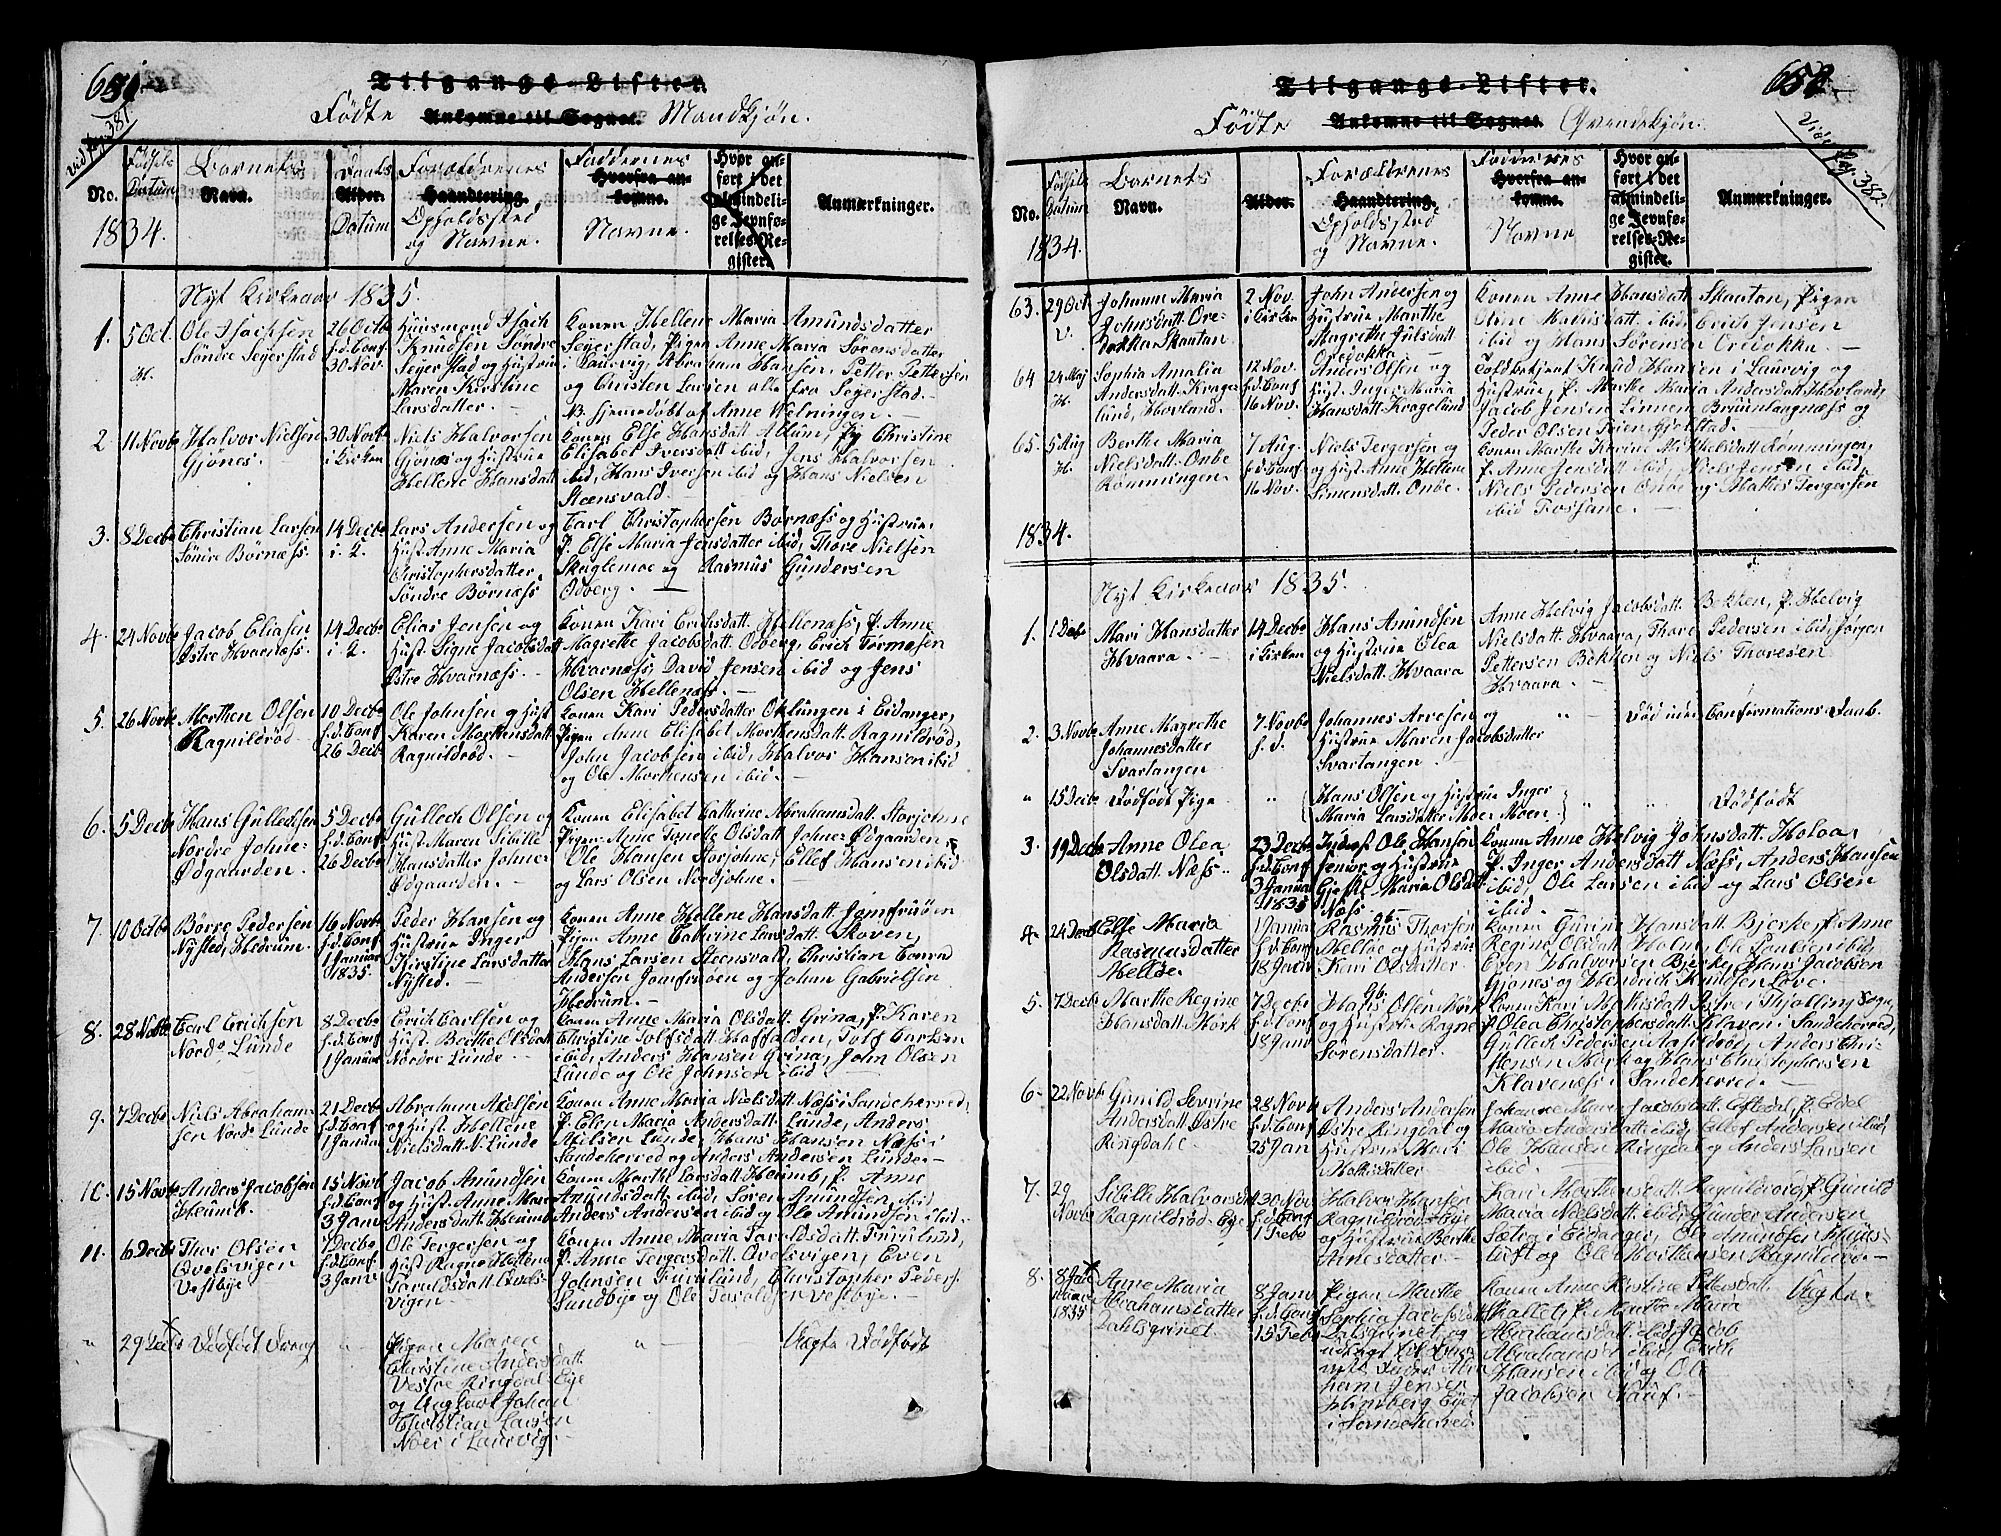 651.
vid pag. 381.
Tilgangs-Lister.
Født Ankomne til Sognet. Mandkjøn.
No.
Fødsels Datum
Barnets
Navn.
Daabs
Alder.
Datum
Forældrenes
Haandtering.
Opholdssted
og Navne.
Faddernes
Hvorfra ankomne.
Navne.
Hvor anført i det almindelige Jevnførelses-Register.
Anmærkninger.
1834.
Nyt Kirkeaar 1835.
1.
5 Oct.
H.
Ole Isachsen
Søndre Seierstad
26 Octb
h.d. Conf
30 Nov.
Huusmand Isach
Knudsen Søndre
Seierstad og Hustrue
Maren Kirstine
Larsdatter.
Konen Hellene Maria Amundsdatter
Seierstad, Pigen Anne Maria Sørensdatter
i Laurvig, Abraham Hansen, Petter Pettersen
og Christen Larsen alle fra Seierstad.
NB. hjemmedøbt af Anne Welningen.
2
11 Novb
Halvor Nielsen
Gjønes.
30 Novb
i Kirken
Niels Halvorsen
Gjønes og Hustrue
Hellene Hansdatt
Konen Else Hansdatt. Allum, Pig Christine
Elisabet Iversdatt ibid, Jens Halvorsen
ibid, Hans Iversen ibid og Hans Nielsen
Steensvald.
3.
8 Decb
Christian Larsen
Søndre Børnæss.
14 Decb
i 2.
Lars Andersen og
Hust. Anne Maria
Christophersdatter
Søndre Børnæss.
Carl Christophersen Børnæss og Hustrue,
P. Else Maria Jensdatter ibid, Thore Nielsen
Skeiglemoe og Rasmus Gundersen
Odberg.
4.
24 Novb
Jacob Eliasen
Østre Hvarnæss.
14 Decb
i 2.
Elias Jensen og
Hust. Signe Jacobsdatt
Østre Hvarnæss.
Konen Kari Erichsdatt. Hellenæss, P. Anne
Magrette Jacobsdatt. Odberg, Erich Tormosen
Hvarnæss, David Jensen ibid og Jens
Olsen Hellenæss.
5.
26 Novb
Morthen Olsen
Ragnildrød.
10 Decb
h.d. Conf
26 Decb
Ole Johnsen og Hust
Karen Morthensdatt
Ragnildrød.
Konen Kari Pedersdatter Oklungen i Eidanger,
Pigen Anne Elisabet Morthensdatt. Ragnildrød,
John Jacobsen ibid, Halvor Hansen ibid
og Ole Morthensen ibid.
6.
5 Decb
Hans Gullechsen
Nordre Johne-
Ødgaarden.
5 Decb
h.d. Conf
26 Decb
Gullech Olsen og
Hust. Maren Sibille
Hansdatter Johne
Ødgaarden.
Konen Elisabet Cathrine Abrahamsdatt. Storjohne
Pigen Anne Tonelle Olsdatt Johne Ødgaarden,
Ole Hansen Storjohne, Ellef Hansen ibid
og Lars Olsen Nordjohne.
7.
10 Octb
Børre Pedersen
Nysted, Hedrum.
16 Novb
h.d. Conf
1 Januar
1835
Peder Hansen og
Hustrue Inger
Kirstine Larsdatter
Nysted.
Konen Anne Hellene Hansdatt. Jomfruøen
Pigen Anne Cathrine Larsdatt. Skoven,
Hans Larsen Steensvald, Christian Conrad
Andersen Jomfruøen og Johan Gabrielsen
Hedrum.
8.
28 Novb
Carl Erichsen
Nord. Lunde
8 Decb
h.d. Conf
1 Januar
Erich Carlsen og
Hust. Berthe Olsdatt
Nordre Lunde
Konen Anne Maria Olsdatt. Grina, P. Karen
Christine Tolfsdatt Haffalden, Tolf Carlsen
ibid, Anders Hansen Grina, John Olsen
Lunde og Ole Johnsen ibid
9.
7 Decb
Niels Abraham-
sen Nord. Lunde
21 Decb
h.d. Conf
1 Januar
Abraham Axelsen
og Hust. Hellene
Nielsdatt N. Lunde
Konen Anne Maria Nielsdatt Næss i Sandeherred,
P. Elen Maria Andersdatt. Lunde, Anders
Axelsen Lunde, Hans Hansen Næss i
Sandeherred og Anders Andersen Lunde.
10.
15 Novb
Anders Jacobsen
Heiumb.
15 Novb
h.d. Conf
3 Janv
Jacob Amundsen
og Hust. Anne Mar.
Andersdatt. Heiumb
Konen Marthe Larsdatt. Heiumb, P. Anne
Amundsdatt ibid, Søren Amundsen ibid,
Anders Andersen ibid og Ole Amundsen ibid.
11.
6 Decb
Thor Olsen
Qvelsvigen
Vestbye
7 Decb
h.d. Conf
3 Janv
Ole Tergersen og
Hust Ragne Hellene
Taraldsdatt. Qvels-
vigen.
Konen Anne Maria Taraldsdatt. Furulund,
P. Anne Tergersdatt. Qvelsvigen, Even
Johnsen Furulund, Christopher Peders.
Sundbye og Ole Taraldsen Vestbye.
"
29 Dec
Dødfødt Dreng
"
Pigen Maren
Christine Andersdatt
Vestre Ringdal-Eje
og Ungkarl Johan
Christian Larsen
Noer i Laurvig.
"
Uægte Dødfødt
652.
Vide pag. 382.
Tilgangs-Lister.
Fødte Ankomne til Sognet. Qvindekjøn.
No.
Fødsels Datum
Barnets
Navn.
Alder.
Forældrenes
Haandtering.
Opholdssted
og Navne.
Faddernes
Hvorfra ankomne.
Navne
Hvor anført i det almindelige Jevnførelses-Register.
Anmærkninger.
1834.
63.
29 Oct.
V.
Johanne Maria
Johnsdatt. Ore-
dokka Skautan
2 Nov.
i Kirken
John Andersen og
Hustrue Marthe
Magrethe Julsdatt
Oredokka
Konen Anne Hansdatt. Skautan, Pigen
Oline Madisdatt. ibid, Erich Jensen
ibid og Hans Sørensen Oredokka.
64
24 Maj
H.
Sophia Amalia
Andersdatt. Krage
lund, Hovland.
12 Nov.
h.d. Conf
16 Nov.
Anders Olsen og
Hust. Inger Maria
Hansdatt. Kragelund
Toldbetjent Knud Hansen i Laurvig og
Hustrue, P. Marthe Maria Andersdatt. Hovland,
Jacob Jensen Linnem Bruunlangnæss og
Peder Olsen Feien Gjolstad.
65.
5 Aug
H.
Berthe Maria
Nielsdatt. Onbe
Rømmingen.
7 Aug.
h.d. Conf
16 Nov.
Niels Tergersen og
og Hust. Anne Hellene
Simensdatt. Onbe.
Konen Marthe Karine Mikkelsdatt Rømmingen,
P. Anne Jensdatt ibid, Niels Jensen ibid,
Niels Pedersen Onbe og Mathis Tergersen
ibid Fossane.
1834.
Nyt Kirkeaar 1835.
1.
1 Decb
Mari Hansdatter
Hvaara
14 Decb
i Kirken
Hans Amundsen
og Hustrue Olea
Nielsdatt. Hvaara
Anne Helvig Jacobsdatt. Bekken, P. Helvig
Nielsdatt. Hvaara, Thore Pedersen ibid, Jørgen
Pettersen Bekken og Niels Thoresen
Hvaara.
2.
3 Novb
Anne Magrethe
Johannesdatter
Svartangen
7 Novb
h.d.
Johannes Arvesen og
Hustrue Maren Jacobsdatter
Svartangen
"
Død uden Confirmations-Daab.
"
15 Decb
Dødfødt Pige
"
Hans Olsen og Hustrue Inger
Maria Larsdatter Moe Moen
"
"
Dødfødt
3.
19 Decb
Anne Olea
Olsdatt. Næss
23 Decb
h.d. Conf
3 Januar
1835
Indsid. Ole Hansen
Senior og Hustrue
Gjeske Maria Olsdatt
Næss.
Konen Anne Helvig Johnsdatt. Holoa,
P. Inger Andersdatt Næss, Anders Hansen
ibid, Ole Larsen ibid og Lars Olsen
ibid.
4.
24 Decb
Else Maria
Rasmusdatter
Melløe.
1 Janua
h.d. Conf
18 Janv
Gb.
Rasmus Thorsen
Melløe og Hustrue
Kari Olsdatter
Konen Gurine Hansdatt Bjerke, P. Anne
Regine Olsdatt. Holm, Ole Paulsen ibid,
Even Halvorsen Bjerke, Hans Jacobsen
Gjønes og Hendrich Knudsen Løve.
5.
7 Decb
Marthe Regine
Hansdatt Mørk
7 Decb
h.d. Conf
18 Janv
Gb.
Hans Olsen Mørk
og Hustrue Ragne
Sørensdatter.
Konen Kari Mathisdatt. Børe i Thjølling Sogn,
P. Olea Christophersdatt. Klaven i Sandeherred,
Gullech Pedersen Aasildrød, Anders Chri-
stensen Mørk og Hans Christophersen
Klavenæss i Sandeherred.
6.
22 Novb
Gunild Severine
Andersdatt Østre
Ringdahl
28 Novb
h.d. Conf
25 Jan
Anders Andersen
Østre Ringdal og
Hustrue Mari
Mathisdatter
Johanne Maria Jacobsdatt. Eftedal, P. Edel
Maria Andersdatt ibid, Ellef Andersen ibid,
Ole Hansen Ringdal og Anders Larsen
ibid.
7.
29
Novb
Sibille Halvorsdatt
Ragnildrød-Eje
30 Nov
h.d. Conf
1 Febr
Halvor Hansen
Ragnildrød-Eje
og Hustrue Berthe
Arnesdatter
Kari Morthensdatt Ragnildrød, P. Gunild
Maria Nielsdatt. ibid, Gunder Andersen
Sætra i Eidanger, Ole Amundsen Skjuls-
tuft og Ole Morthensen Ragnildrød.
8.
8 Ja
nuar
1835
Anne Maria
Abrahamsdatter
Dahlsgrinet
8 Janv
h.d. Conf
15 Febr
Pigen Marthe
Sophia Jacobsdatt
Dalsgrinet og
udlagt til Barne-
Fader Abra
ham Jensen
Himberg Eje
i Sandeherred
Konen Anne Kirstine Pettersdatt.
Skallet, P. Marthe Maria
Abrahamsdatt. ibid, Jacob
Abrahamsen ibid, Erich
Hansen ibid og Ole
Jacobsen Nauf.
Uægte.